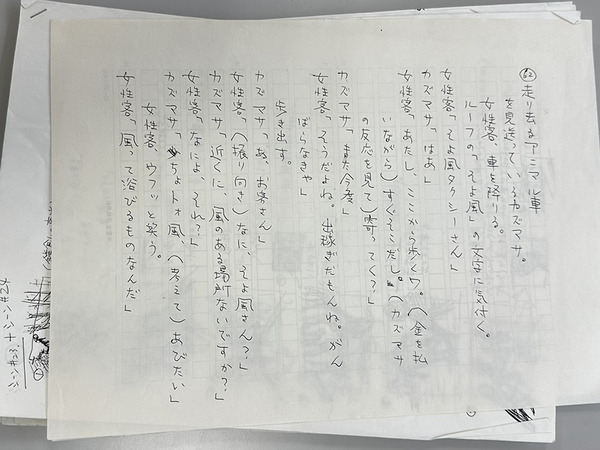 62 走り去るアニマル車
を見送っているカズマサ。
女性客、車を降りる。
ルーフの「そよ風」の文字に気付く。
女性客「そよ風タクシーさん」
カズマサ「はあ」
女性客「あたし、ここから歩くワ。(金を払
いながら)すぐそこだし。(カズマサ
の反応を見て)寄ってく?」
カズマサ「また今度」
女性客「そうだよね。出稼ぎだもんね。がん
ばらなきゃ」
歩き出す。
カズマサ「あ、お客さん」
女性客「(振り向き)なに、そよ風さん?」
カズマサ「近くに、風のある場所ないですか?」
女性客「なによ、それ?」
カズマサ「ちょトォ風、(考えて)あびたい」
女性客、ウフッと笑う。
女性客「風って浴びるものなんだ」